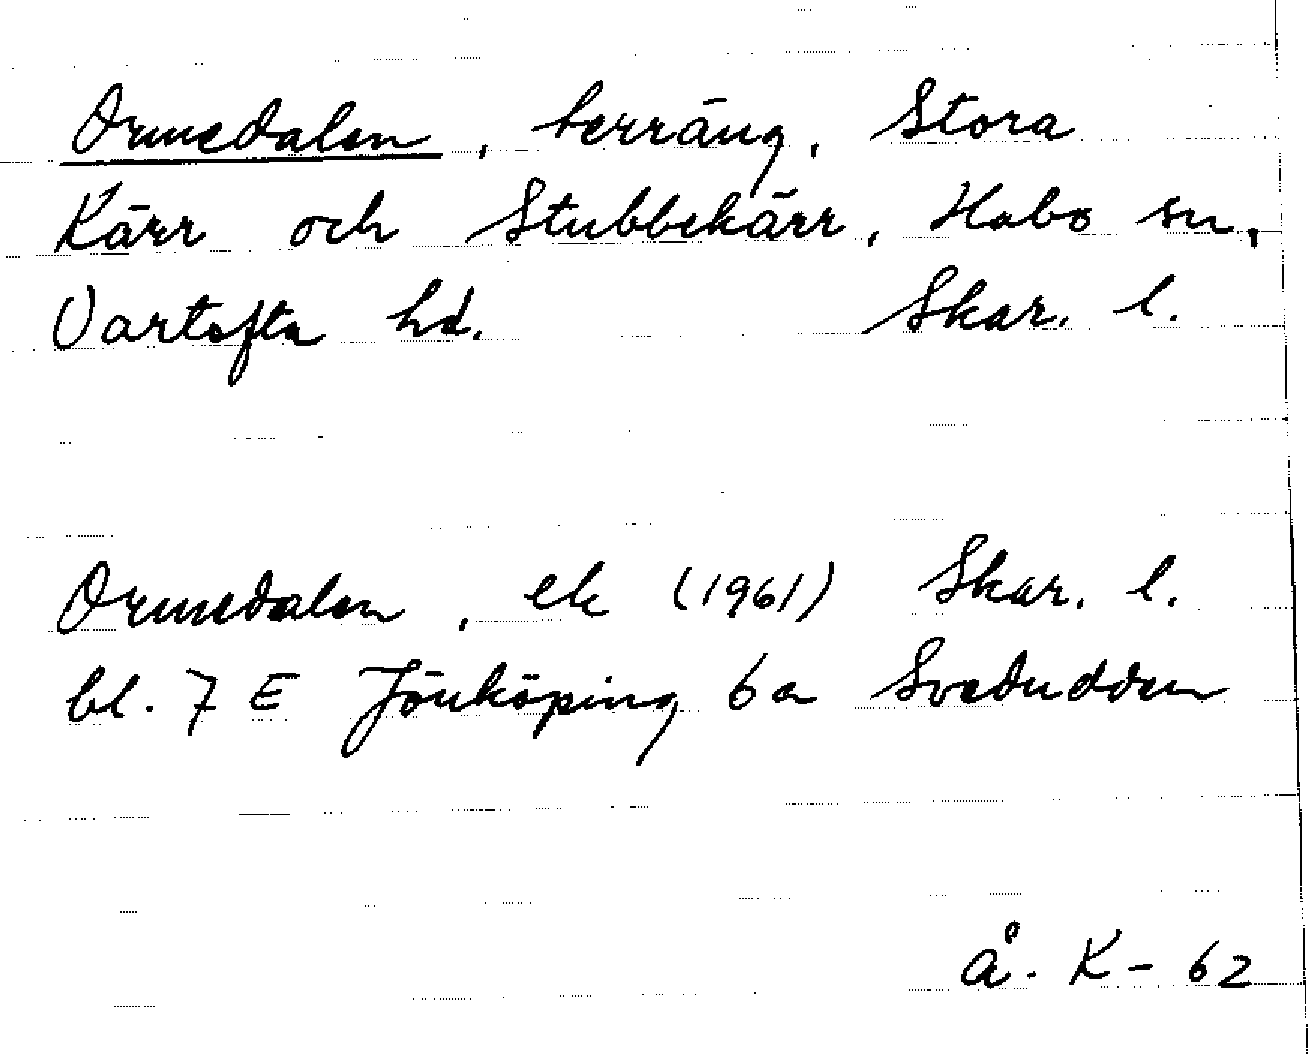 Ormedalen, terräng, Stora
Kärr och Stubbekärr, Habo sn,
Vartofta hd. Skar. l.
Ormedalen, ek (1961) Skar. l.
bl. 7 E Jönköping 6a Svedudden
Å. K-62